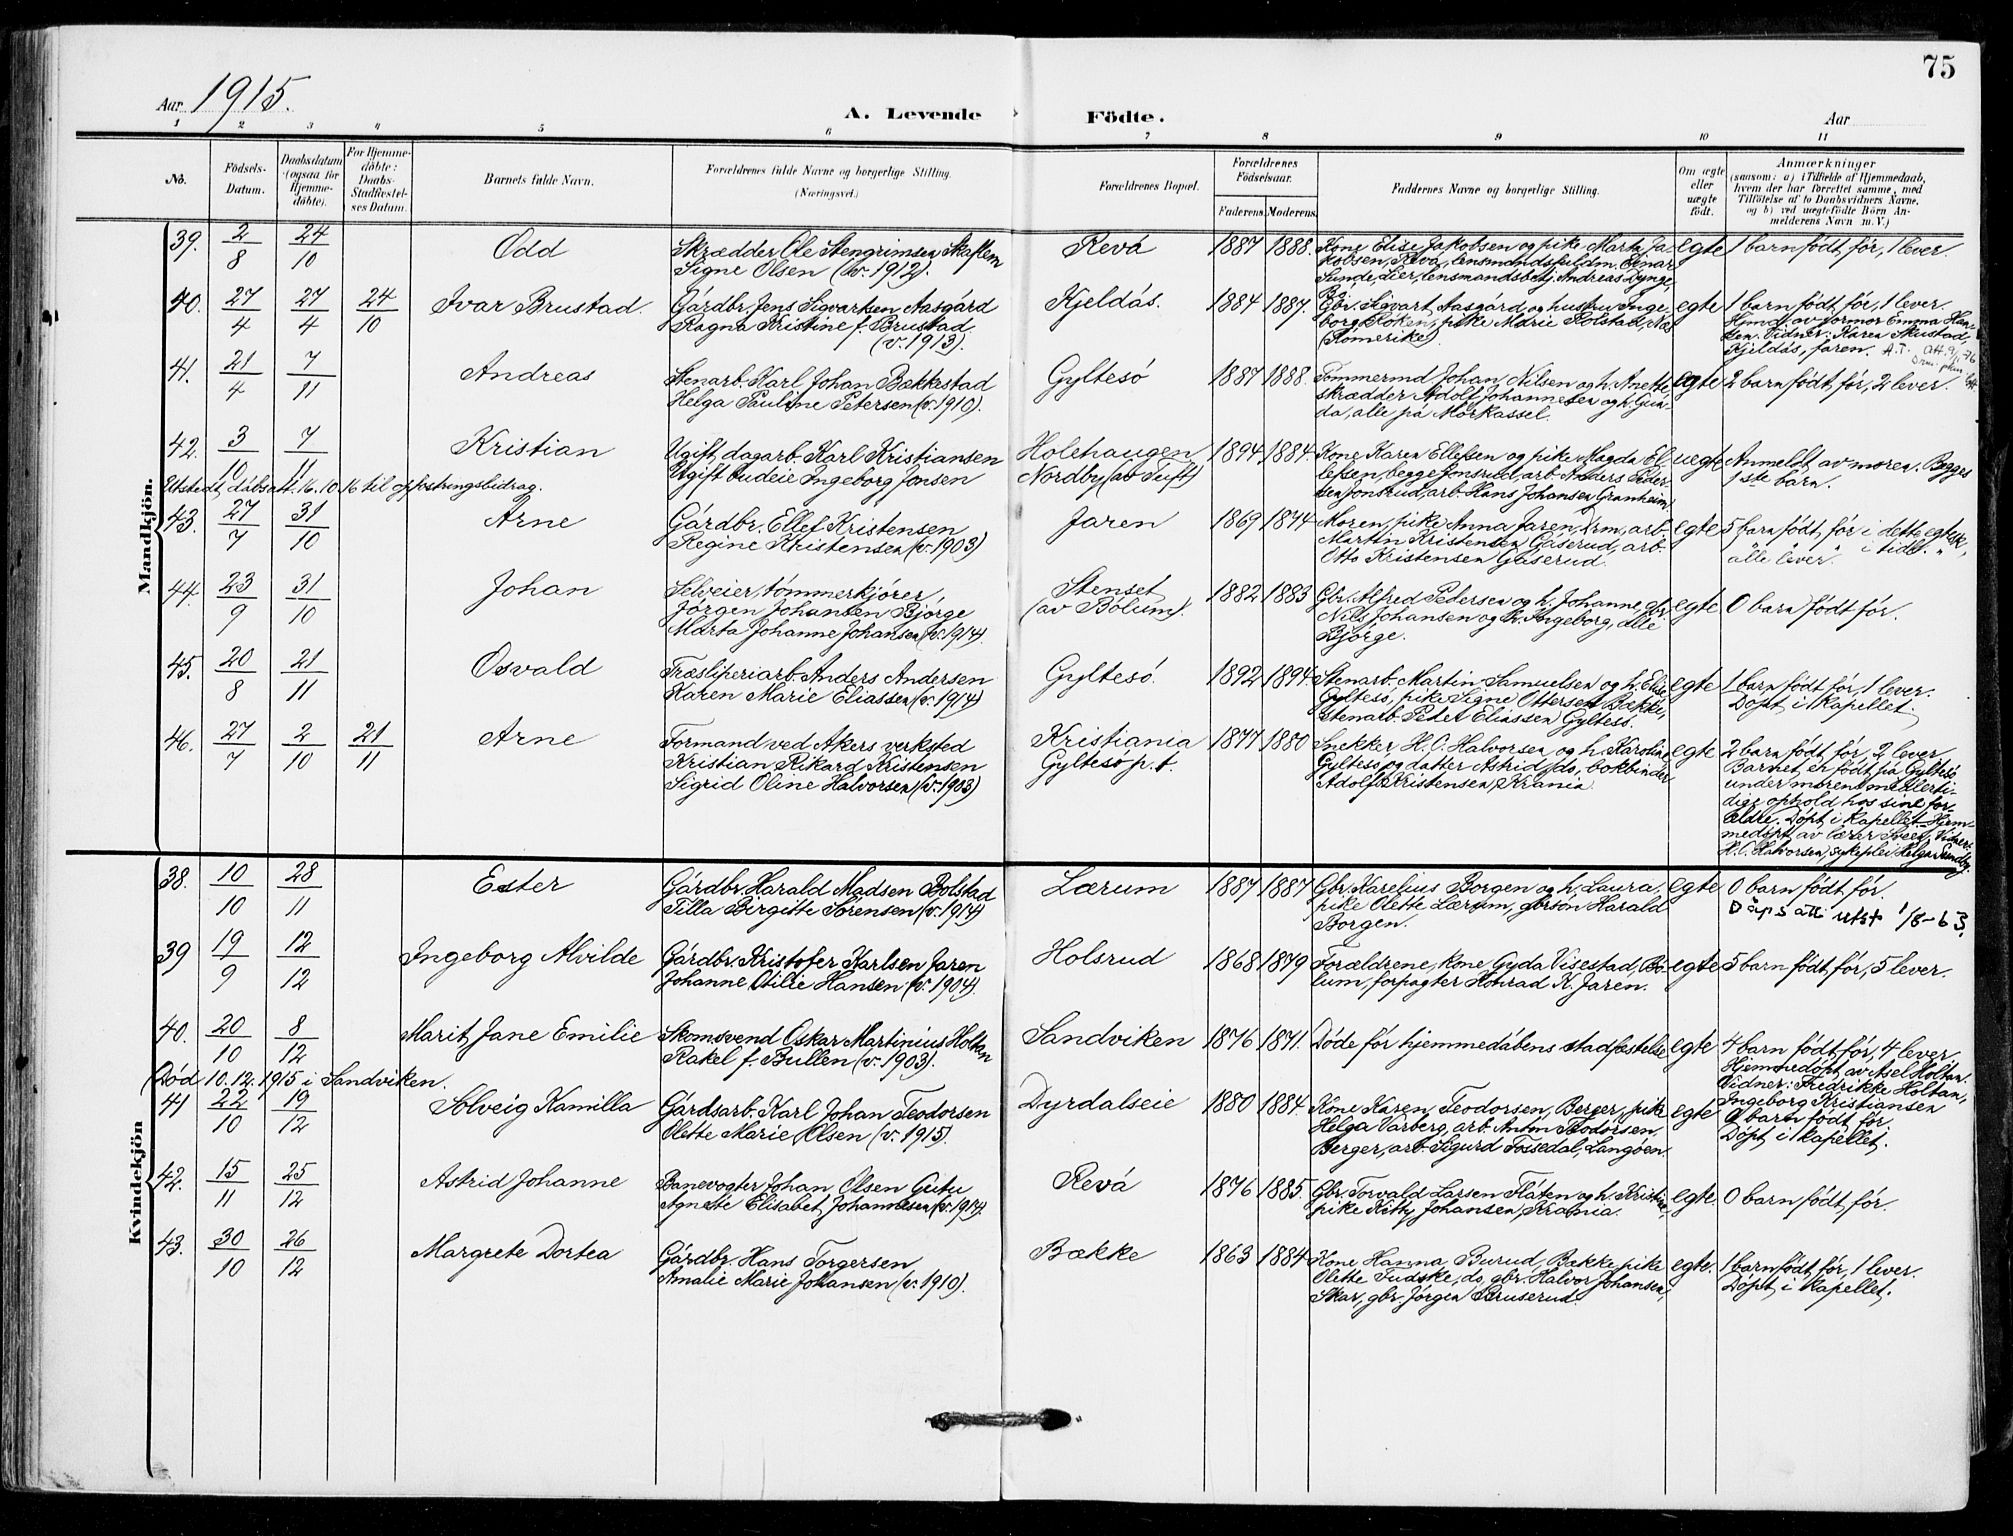 75
Aar 1915.
A. Levende Födte.
Aar
1 2 3 4 5 6 7 8 9 10 11
No.
Födsels-Datum.
Daabsdatum (ogsaa for Hjemme-döbte).
For Hjemme-döbte: Daabs-Stadfæstel-ses Datum.
Barnets fulde Navn.
Forældrenes fulde Navne og borgerlige Stilling.
(Næringsvei.)
Forældrenes Bopæl.
Forældrenes Födselsaar.
Faderens. Moderens.
Faddernes Navne og borgerlige Stilling.
Om ægte eller uægte födt.
Anmærkninger
(saasom: a) i Tilfælde af Hjemmedaab,
hvem der har forrettet samme, med
Tilföielse af to Daabsvidners Navne,
og b) ved uægtefödte Börn An-
melderens Navn m. V.)
Mandkjön.
39. 2/8 24/10 Odd
Skrædder Ole Stengrimsen Skaflem
Signe Olsen (v. 1912).
Revå 1887 1888.
Kone Elise Jakobsen og pike Marta Ja-
kobsen, Revå, lensmandsfuldm. Einar
Sunde, dier, lensmandsbetj. Andreas Dynge,
egte 1 barn født før, 1 lever.
40. 27/4 27/4 24/10 Ivar Brustad.
Gårdbr. Jens Sigvartsen Aasgård
Ragna Kristine f. Brustad.
(v. 1913).
Kjeldås. 1884 1887.
Gbr. Sigvart Aasgård og hustru Inge-
borg, Røken, pike Marie Rolstad, Næs
(Romerike).
egte 1 barn født før, 1 lever.
Hjmd. av formor Emma Han-
sen. Vidner: Karen Skustad,
Kjeldås, faren. A.T.
41. 21/4 7/11 Andreas
Stenarb. Karl Johan Bækkestad
Helga Pauline Petersen (v. 1910).
Gyltesø 1887 1888.
Tømmermd Johan Nilsen og h. Anette,
skrædder Adolf Johannesen og h. Gun-
da, alle på Mørkassel.
egte 2 barn født før, 2 lever.
42. 3/10 7/11 Kristian
Ugift dagarb. Karl Kristiansen
Ugift budeie Ingeborg Jonsen
Holehaugen
Nordby (av Tuft)
1894 1884.
Kone Karen Ellefsen og pike Magda El-
lefsen, begge Jonsrud, arb. Anders Peder-
sen Jonsrud, arb. Hans Johansen Granheim.
uegte Anmeldt av moren. Begges
1ste barn.
Utstedt dåbsatt. 16.10.16 til opfostringsbidrag.
43. 27/7 31/10 Arne
Gårdbr. Ellef Kristensen
Regine Kristensen (v. 1903)
Jaren 1869 1874
Moren, pike Anna Jaren, Drm, arb.
Martin Kristensen Gåserud, arb.
Otto Kristensen Gåserud.
egte 5 barn født før i dette egtesk.,
alle lever. i tidl. "
44. 23/9 31/10 Johan
Selveier, tømmerkjører,
Jørgen Johansen Bjørge
Marta Johanne Johansen (v. 1914).
Stenset
(av Bølum).
1882 1883
Gbr. Alfred Petersen og h. Johanne, gbr.
Nils Johansen og h. Ingeborg, alle
Bjørge.
egte 0 barn født før.
45. 20/8 21/11 Osvald
Træsliperiarb. Anders Andersen
Karen Marie Eliassen (v. 1914)
Gyltesø 1892 1894.
Stenarb. Martin Samuelsen og h. Elise
Gyltesø, pike Signe Ottersen Bække,
stenarb. Peder Eliassen Gyltesø.
egte 1 barn født før, 1 lever.
Døpt i Kapellet.
46. 27/7 2/10 21/11 Arne
Formand ved Akers verksted
Kristian Rikard Kristensen
Sigrid Oline Halvorsen (v. 1903)
Kristiania
Gyltesø p.t.
1877 1880
Snekker H. C. Halvorsen og h. Karoline
Gyltesø og datter Astrid, do, bokbinder
Adolf Kristensen, Krania.
egte 2 barn født før, 2 lever.
Barnet er født på Gyltesø
under morens midlerti-
dige ophold hos sine for-
ældre. Døpt i kapellet. Hjem-
medøpt av lærer Sveen. Vidner:
H. C. Halvorsen, sykeplei. Helga Sundby.
Kvindekjön
38. 10/10 28/11 Ester
Gårdbr. Harald Madsen Bolstad
Tilla Birgitte Sørensen (v. 1914)
Lærum 1887 1887
Gbr. Karelius Borgen og h. Laura,
pike Olette Lærum, gbrsøn Harald
Borgen.
egte 0 barn født før.
Dåpsatt utst 1/8-63.
39 19/9 12/12 Ingeborg Alvilde
Gårdbr. Kristofer Karlsen Jaren
Johanne Otilie Hansen. (v. 1904).
Holsrud 1868 1879
Forældrene, kone Gyda Visestad, Bø-
lum, forpagter Konrad K. Jaren.
egte 5 barn født før, 5 lever.
40. 20/10 8/12 Marit Jane Emilie
Skomsvend Oskar Martinius Holtan
Rakel f. Bullen (v. 1903).
Sandviken 1876 1871.
Døde før hjemmedåbens stadfæstelse
egte 4 barn født før, 4 lever.
Hjemmedøpt av Asel Holtan.
Vidner: Fredrikke Holtan,
Ingeborg Kristiansen
Død 10.12.1915 i Sandviken.
41 22/10 19/12 Solveig Kamilla
Gårdsarb. Karl Johan Teodorsen
Olette Marie Olsen (v. 1915).
Dyrdalseie 1880 1884.
Kone Karen Teodorsen, Berger, pike
Helga Varberg, arb. Anton Teodorsen,
Berger, arb. Sigurd Fossedal, Langøen.
egte 0 barn født før.
Døpt i kapellet.
42. 15/11 25/12 Astrid Johanne
Banevogter Johan Olsen Gutu
Agnete Elisabet Johannesen (v. 1914).
Revå 1876 1885.
Gbr. Torvald Larsen Flåten og h. Kristine,
pike Kitty Johansen, Krania.
egte. 0 barn født før.
43. 30/10 26/12 Margrete Dortea
Gårdbr. Hans Torgersen
Amalie Marie Johansen (v. 1910).
Bække 1863 1884
Kone Hanna Burud, Bække, pike
Olette Tudske, do, gbr. Halvor Johansen,
Skar, gbr. Jørgen Bruserud.
egte. 1 barn født før, 1 lever.
Døpt i kapellet.